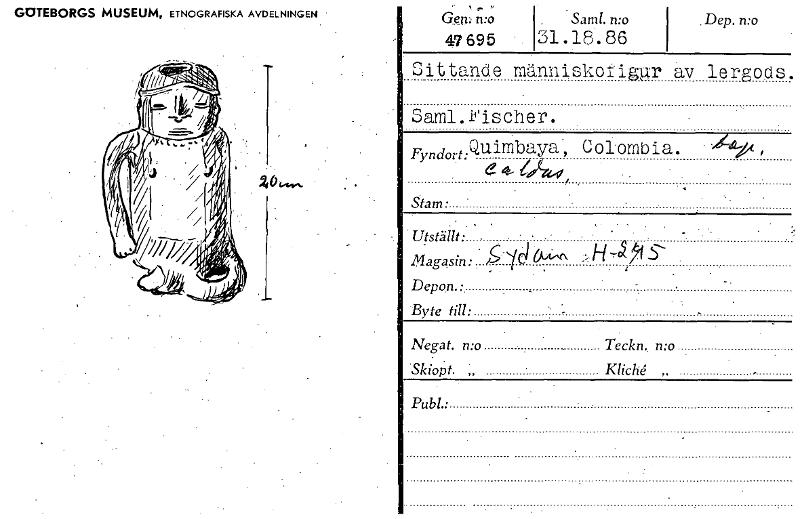 GÖTEBORGS MUSEUM, ETNOGRAFISKA AVDELNINGEN
20 cm
Gen. n:o Saml. n:o Dep. n:o
47695 31.18.86
Sittande människofigur av lergods.
Saml. Fischer.
Fyndort: Quimbaya, Colombia.
Caldas,
Stam:
Utställt:
Magasin: Sydam H-
Depon.:
Byte till:
Negat. n:o Teckn. n:o
Skiopt. „ Kliché „
Publ.: